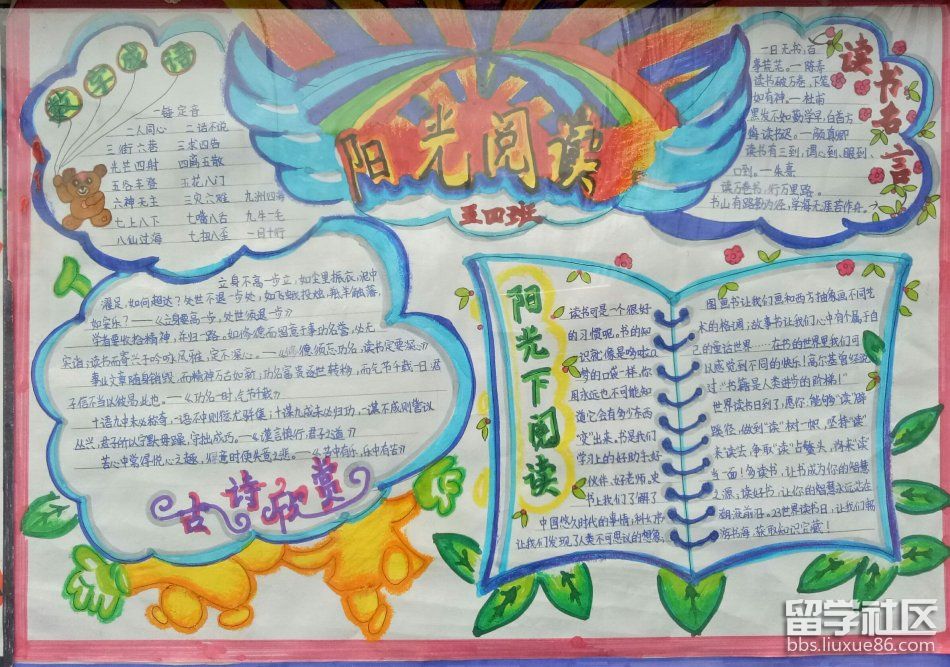 数字成语
一锤定音
二人同心 二话不说
三街六巷 三求四告
光芒四射 四离五散
五谷丰登 五花八门
六神无主 三灾六难 九洲四海
七上八下 七嘴八舌 九牛一毛
八仙过海 七扭八歪 一目十行
阳光阅读
五四班
读书名言
一日无书,百
事荒芜。—陈寿
读书破万卷,下笔
如有神。—杜甫
黑发不知勤学早,白首方
悔读书迟。—颜真卿
读书有三到,谓心到、眼到、
口到。—朱熹
读万卷书,行万里路。
书山有路勤为径,学海无涯苦作舟。
立身不高一步立,如尘里振衣,泥中
濯足,如何超达?处世不退一步处,如飞蛾投烛,羝羊触藩,
如安乐?——《立身要高一步,处世须退一步》
学者要收拾精神,并归一路。如修德而留意于事功名誉,必无
实诣;读书而寄兴于吟咏风雅,定不深心。—《修德须忘功名,读书定要深心》
事业文章随身销毁,而精神万古如新;功名富贵逐世转移,而气节千载一日,君
子信不当以彼易此也。—《功名一时,气节千载》
十语九中未必称奇,一语不中则愆尤骈集;十谋九成未必归功,一谋不成则訾议
丛兴,君子所以宁默毋躁,宁拙毋巧。—《谨言慎行,君子之道》
苦心中常得悦心之趣,得意时便失意之悲。—《苦中有乐,乐中有苦》
古诗欣赏
阳光下阅读
读书可是一个很好
的习惯呢。书的知
识就像是哆啦A
梦的口袋一样,你
且永远也不可能知
道它会有多少东西
“变”出来,书是我们
学习上的好助手好
伙伴、好老师。史
书上我们了解了
中国悠久时代的事情;科幻书
让我们发现了人类不可思议的想象;
图画书让我们画和西方抽象画不同艺
术的格调;故事书让我们心中有个属于自
己的童话世界……在书的世界里我们可
以感觉到不同的快乐!高尔基曾经说
过:“书籍是人类进步的阶梯!”
世界读书日到了,愿你,能够“读”辟
蹊径,做到“读”树一帜,坚持“读”
来读去,争取“读”占鳌头,将来“读
当一面!多读书,让书成为你的智慧
之源,读好书,让你的智慧永远立在
潮流前沿。23世界读书日,让我们畅
游书海,获取知识宝藏!
留学社区
bbs.liuxue86.com